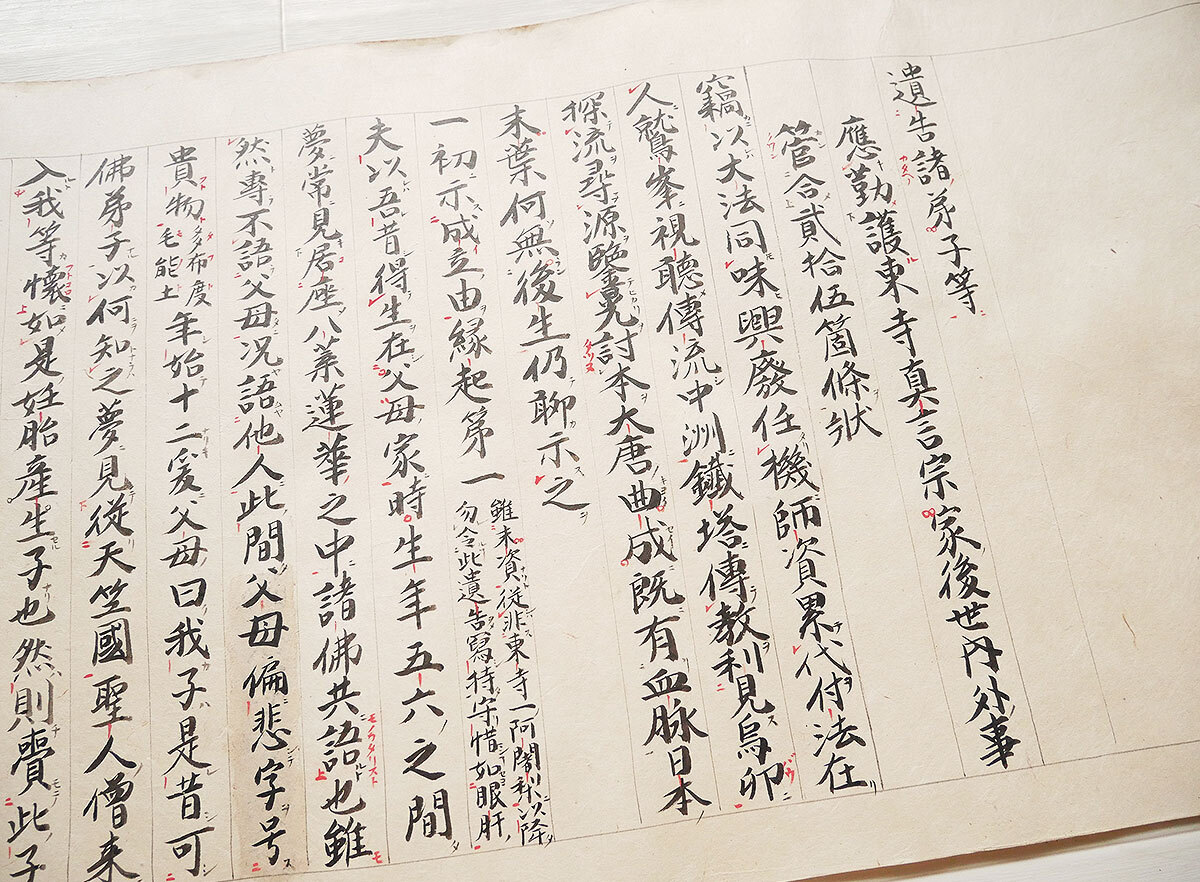 遺告諸弟子等
應勤護東寺真言宗家後世内外事
管合貳拾伍箇條状
竊以大法同味興廢任機師資累代付法在
人鷲峯視聽傳流中洲鐵塔傳教利見烏卯
探流尋源鑒晃討本大唐曲成既有血脉日本
末葉何無後生仍聊示之
一初示成立由縁起第一
雖末資從非東寺一阿闍梨以降
勿令此遺告寫持守惜如眼肝
夫以吾昔得生在父母家時生年五六之間
夢常見居座八葉蓮華之中諸佛共語也雖
然專不語父母况語他人此間父母偏悲字号
貴物多布度毛能土年始十二爰父母曰我子是昔可
佛弟子以何知之夢見従天竺國聖人僧来
入我等懷如是妊胎産生子也然則賷此子